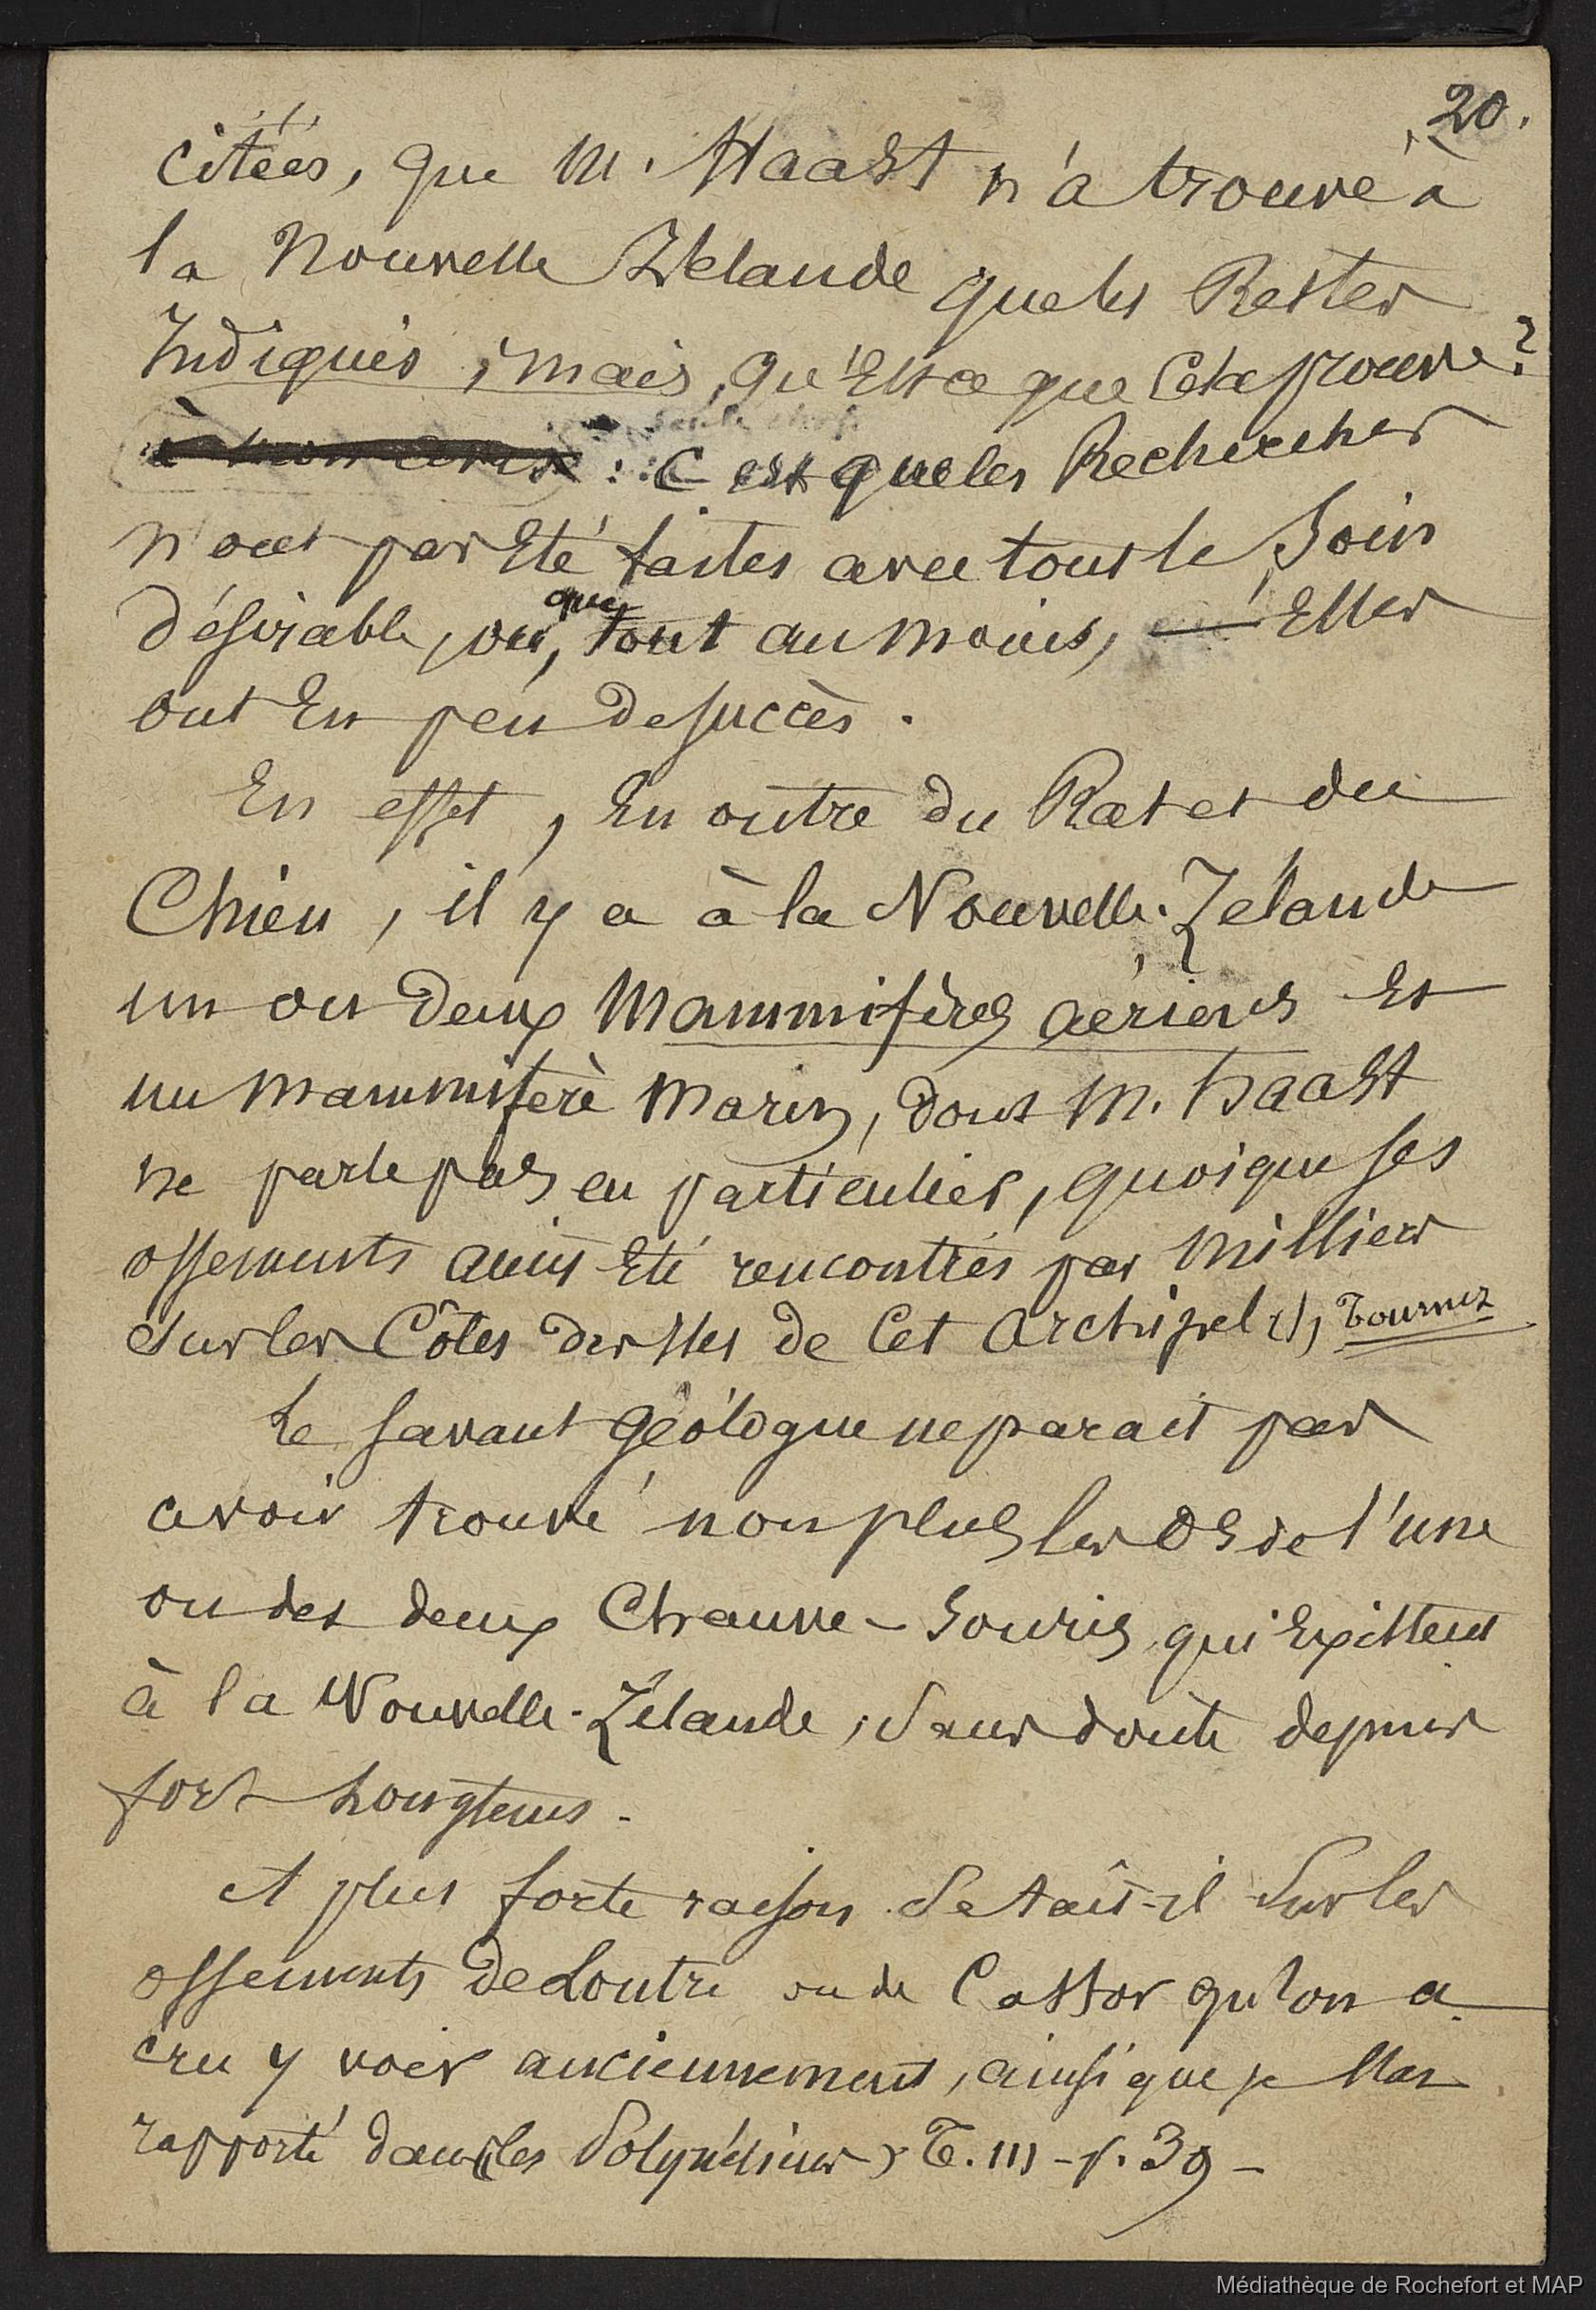 20.
citées, que M. Haast n'a trouvé à
la Nouvelle Zélande que les Restes
Indiqués ; mais, qu'Est ce que Cela prouve ?
à mon avis : C'est que les Recherches
n'ont pas Eté faites avec tout le Soin
désirable, ou, que tout au moins, Elles
ont Eu peu de succès.
En effet, En outre du Rat et du
Chien, il y a à la Nouvelle-Zélande
un ou deux Mammifères aériens Et
un Mammifère Marin, dont M. Haast
ne parle pas en particulier, quoique ses
ossements aient Eté rencontrés par Milliers
sur les Côtes des Iles de Cet Archipel (1), Tournez
Le savant géologue ne parait pas
avoir trouvé non plus les os de l'une
ou des deux Chauve-Souris qui Existent
à la Nouvelle-Zélande, sans doute depuis
fort Longtems.
A plus forte raison se taît-il sur les
ossements de Loutre ou de Castor qu'on a
cru y voir anciennement, ainsi que je l'ai
rapporté dans (les Polynésiens) T. III - p. 39 -
Médiathèque de Rochefort et MAP